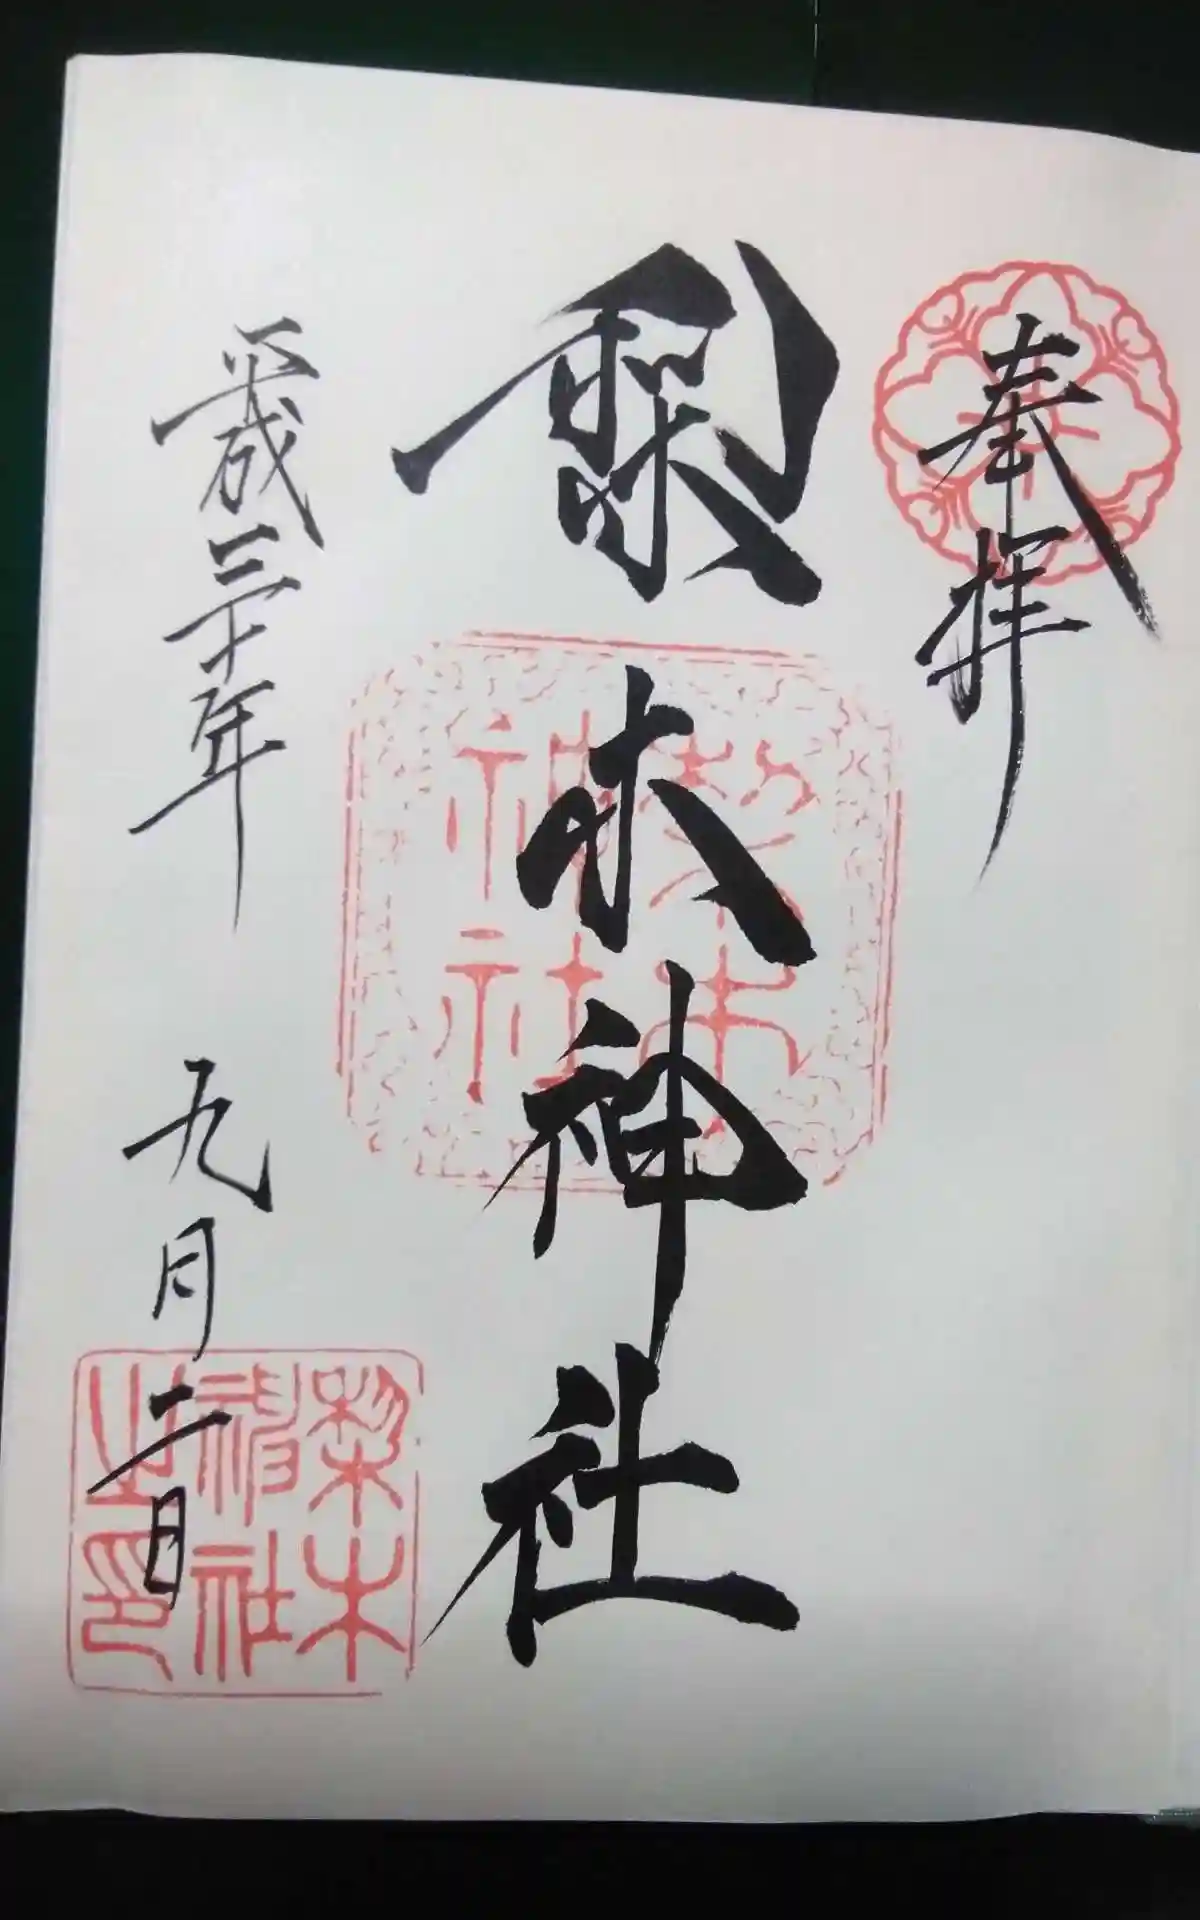 奉拝
梨木神社
梨木神社
平成三十年 九月二日
梨木神社之印